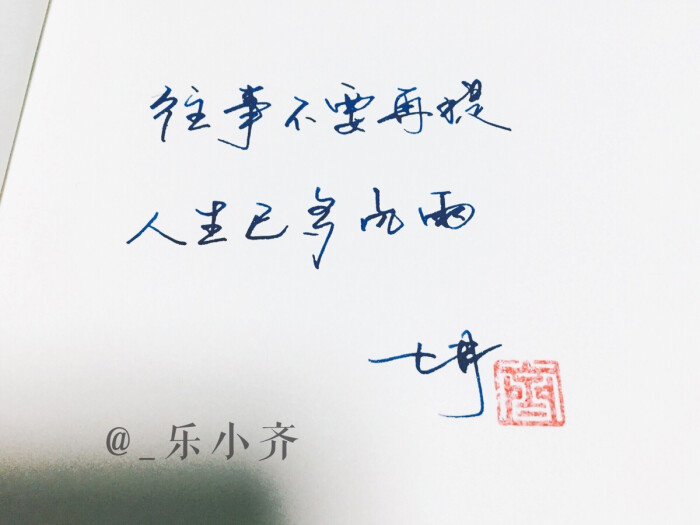 往事不要再提
人生已多风雨
@_乐小齐